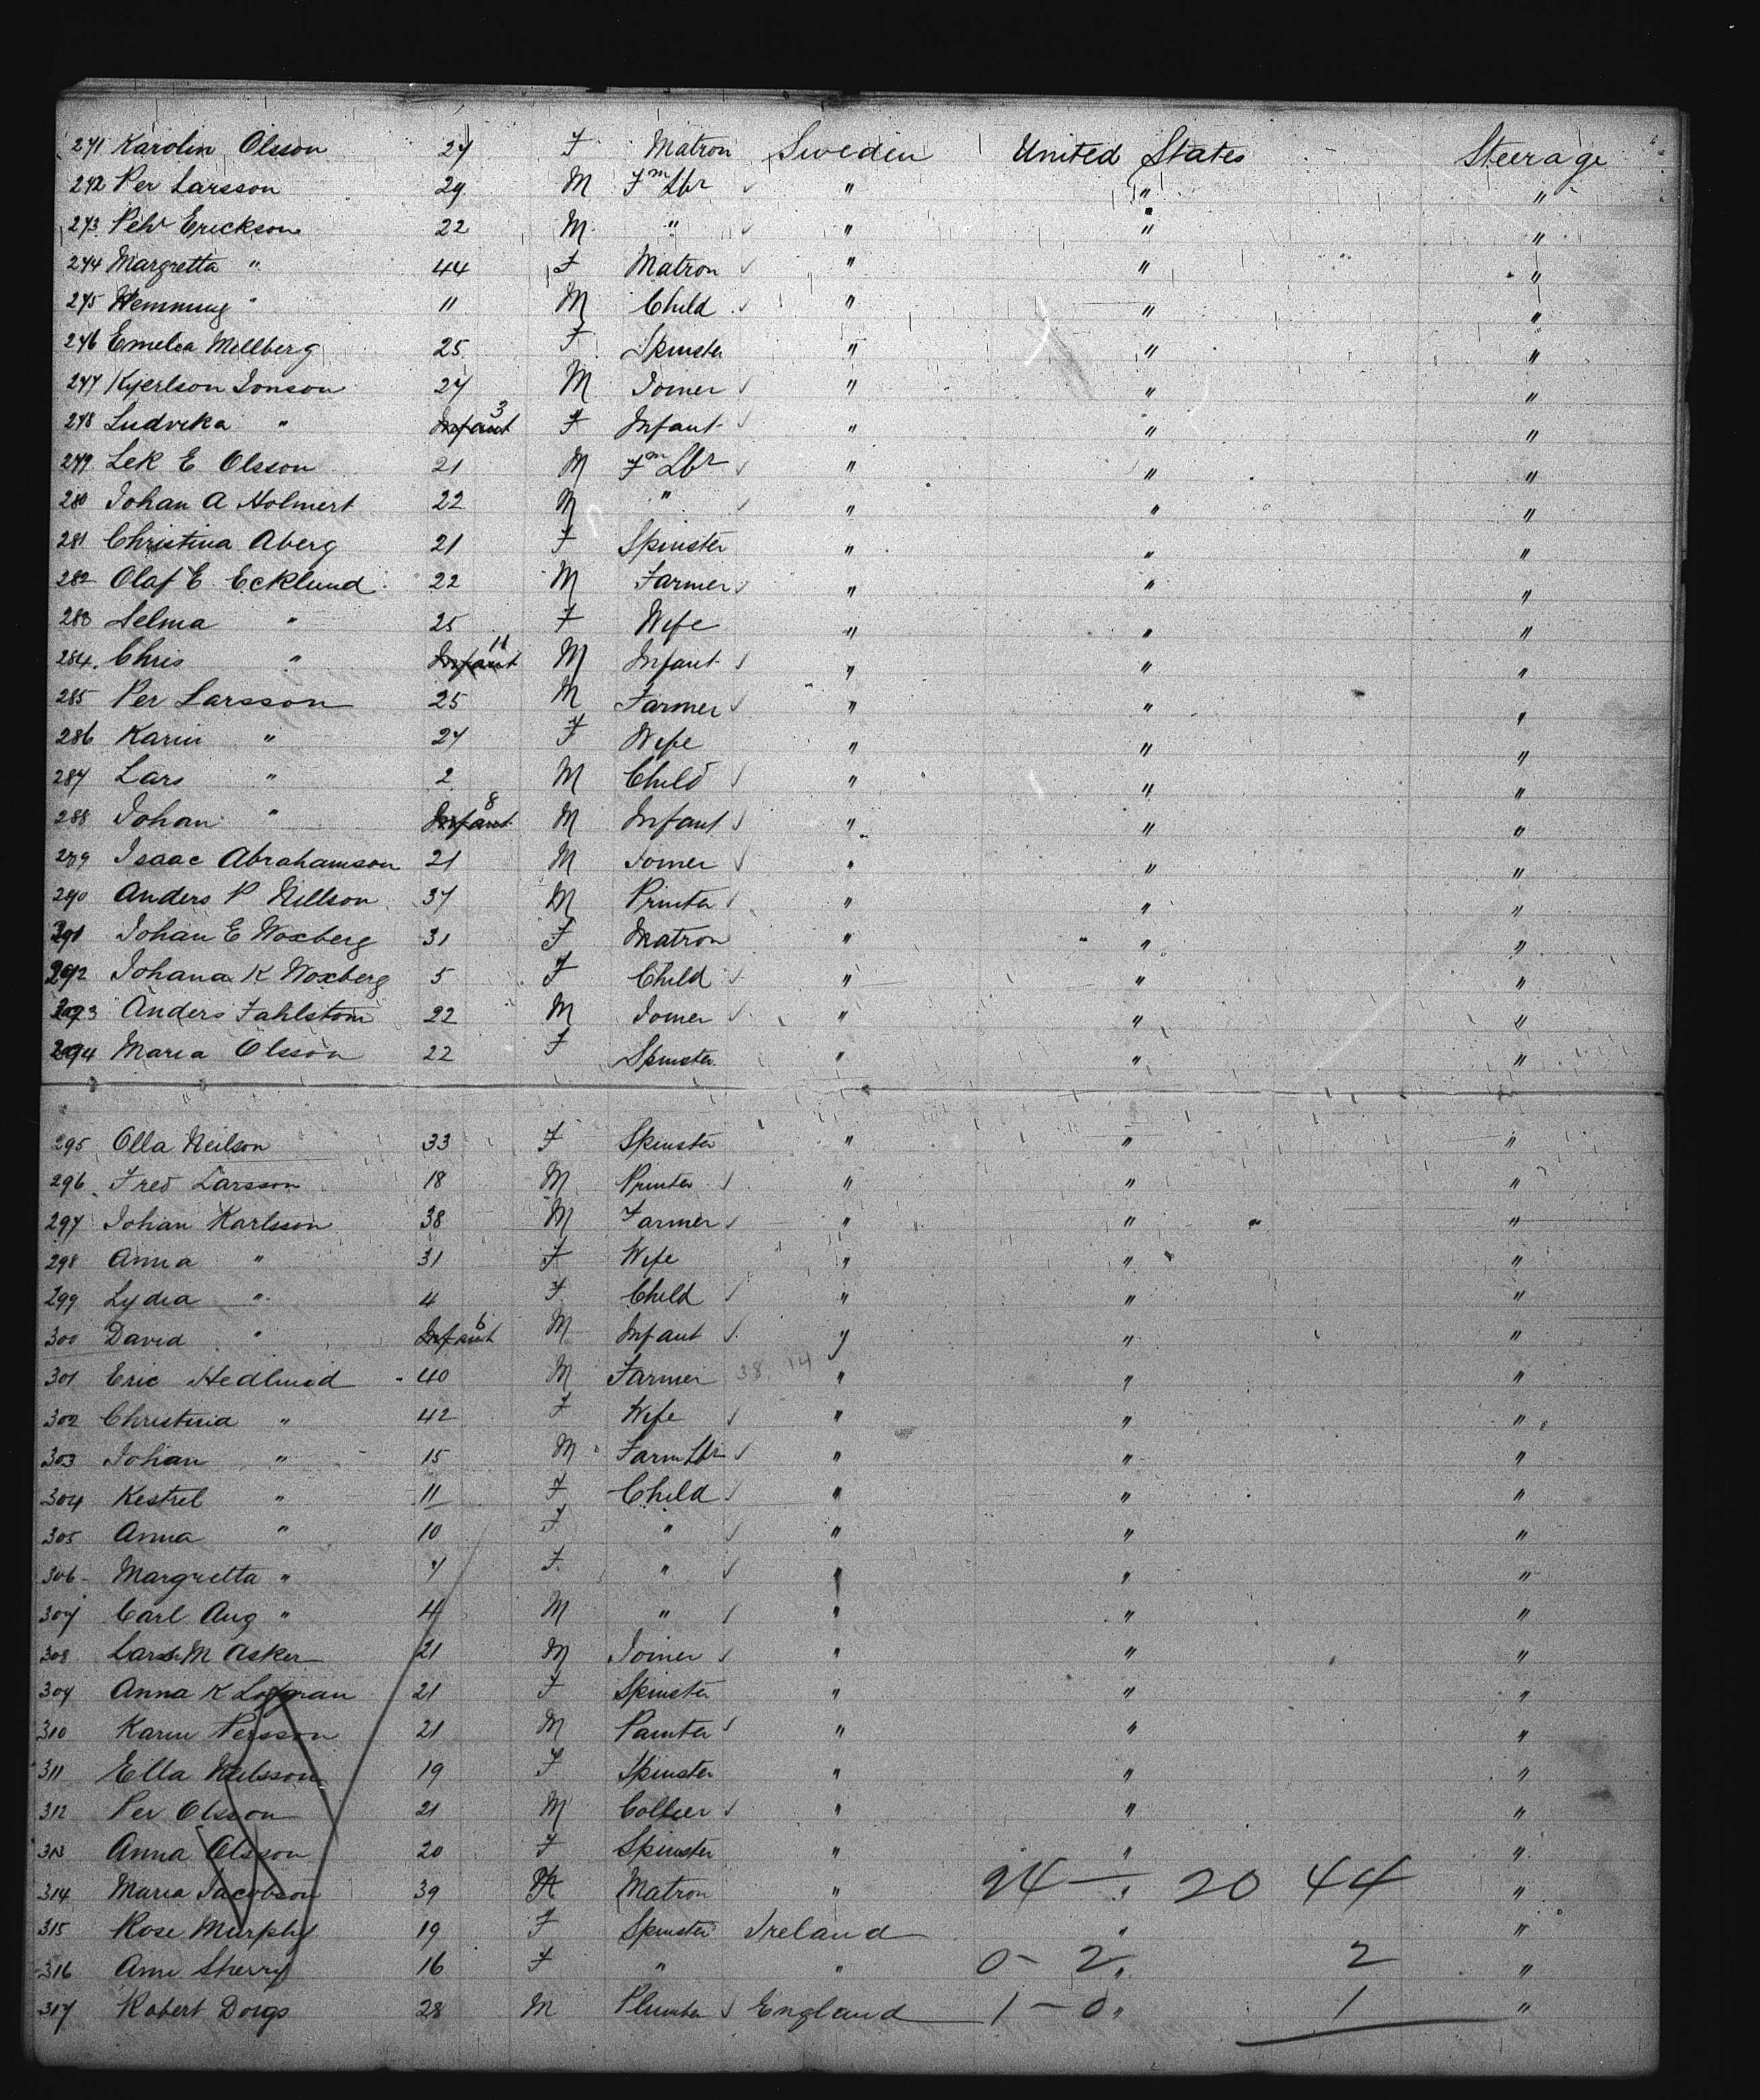 271 Karolin Olsson 27 F Matron Sweden United States Steerage
272 Per Larsson 29 M Fm Lbr " " "
273 Pehr Erickson 22 M " " " "
274 Margretta " 44 F Matron " " "
275 Hemming " 11 M Child " " "
276 Emelia Mellberg 25 F Spinster " " "
277 Kjerlson Jonson 27 M Joiner " " "
278 Ludvika " Infant 3 F Infant " " "
279 Lek E Olsson 21 M Fm Lbr " " "
280 Johan A Holmert 22 M " " " "
281 Christina Aberg 21 F Spinster " " "
282 Olaf E. Ecklund 22 M Farmer " " "
283 Selma " 25 F Wife " " "
284 Chris " Infant 11 M Infant " " "
285 Per Larsson 25 M Farmer " " "
286 Karin " 27 F Wife " " "
287 Lars " 2 M Child " " "
288 Johan " Infant 8 M Infant " " "
289 Isaac Abrahamson 21 M Joiner " " "
290 Anders P Nillson 37 M Printer " " "
291 Johan E Woxberg 31 F Matron " " "
292 Johana K Woxberg 5 F Child " " "
293 Anders Fahlstom 22 M Joiner " " "
294 Maria Olsson 22 F Spinster " " "
295 Olla Neilson 33 F Spinster " " "
296 Fred Larsson 18 M Printer " " "
297 Johan Karlsson 38 M Farmer " " "
298 Anna " 31 F Wife " " "
299 Lydia " 4 F Child " " "
300 David " Infant 6 M Infant " " "
301 Eric Hedlund 40 M Farmer 38. 14 " " "
302 Christina " 42 F Wife " " "
303 Johan " 15 M Farm Lbr " " "
304 Kestrel " 11 F Child " " "
305 Anna " 10 F " " " "
306 Margretta " 7 F " " " "
307 Carl Aug " 4 M " " " "
308 Lars M Asker 21 M Joiner " " "
309 Anna K Lofgran 21 F Spinster " " "
310 Karin Persson 21 M Painter " " "
311 Ella Nilsson 19 F Spinster " " "
312 Per Olsson 21 M Collier " " "
313 Anna Olsson 20 F Spinster " " "
314 Maria Jacobson 39 F Matron " 24 — " 20 44 "
315 Rose Murphy 19 F Spinster Ireland " "
316 Ann Sherry 16 F " " 0 - 2 " 2 "
317 Robert Doigs 28 M Plumber England 1 - 0 " 1 "